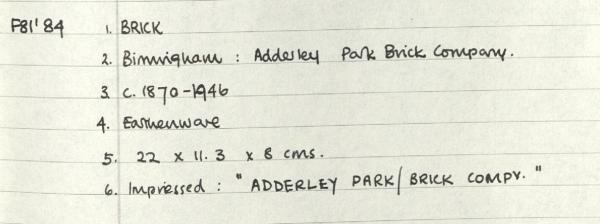 F81'84 1. BRICK
2. Birmingham : Adderley Park Brick Company.
3. c. 1870-1946
4. Earthenware
5. 22 x 11.3 x 8 cms.
6. Impressed : "ADDERLEY PARK/ BRICK COMPY."